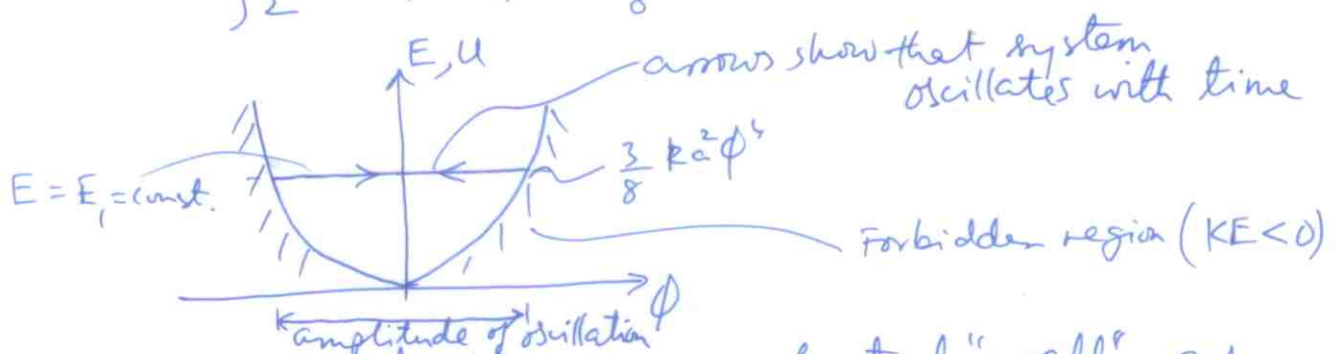 E, U
arrows show that system
oscillates with time
3/8 ka²ϕ⁴
E = E₁ = const.
Forbidden region (KE<0)
ϕ
amplitude of oscillation